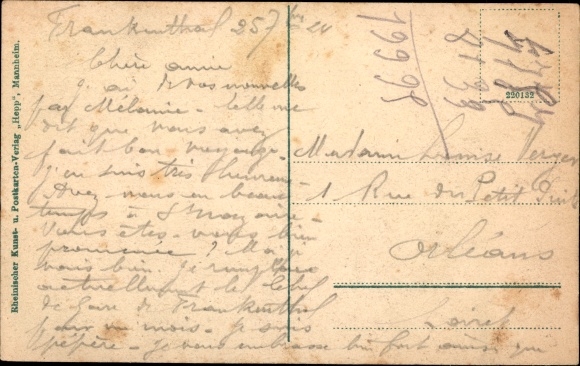 Frankenthal 25/7 24
Chère amie
J'ai vos nouvelles
par Mélanie - elle me
dit que vous avez
fait bon voyage -
j'en suis très heureux -
Avez-vous eu beau
temps à St Nazaire -
Vous êtes-vous bien
promenée ? Moi je
vais bien. Je remplace
actuellement le chef
de Gare de Frankenthal
pour un mois - je suis
pépère - je vous embrasse bien fort ainsi que
Madame Louise
1 Rue du Petit Puits
Orléans
Loiret
220132
19998
Rheinischer Kunst- u. Postkarten-Verlag „Hepp", Mannheim.